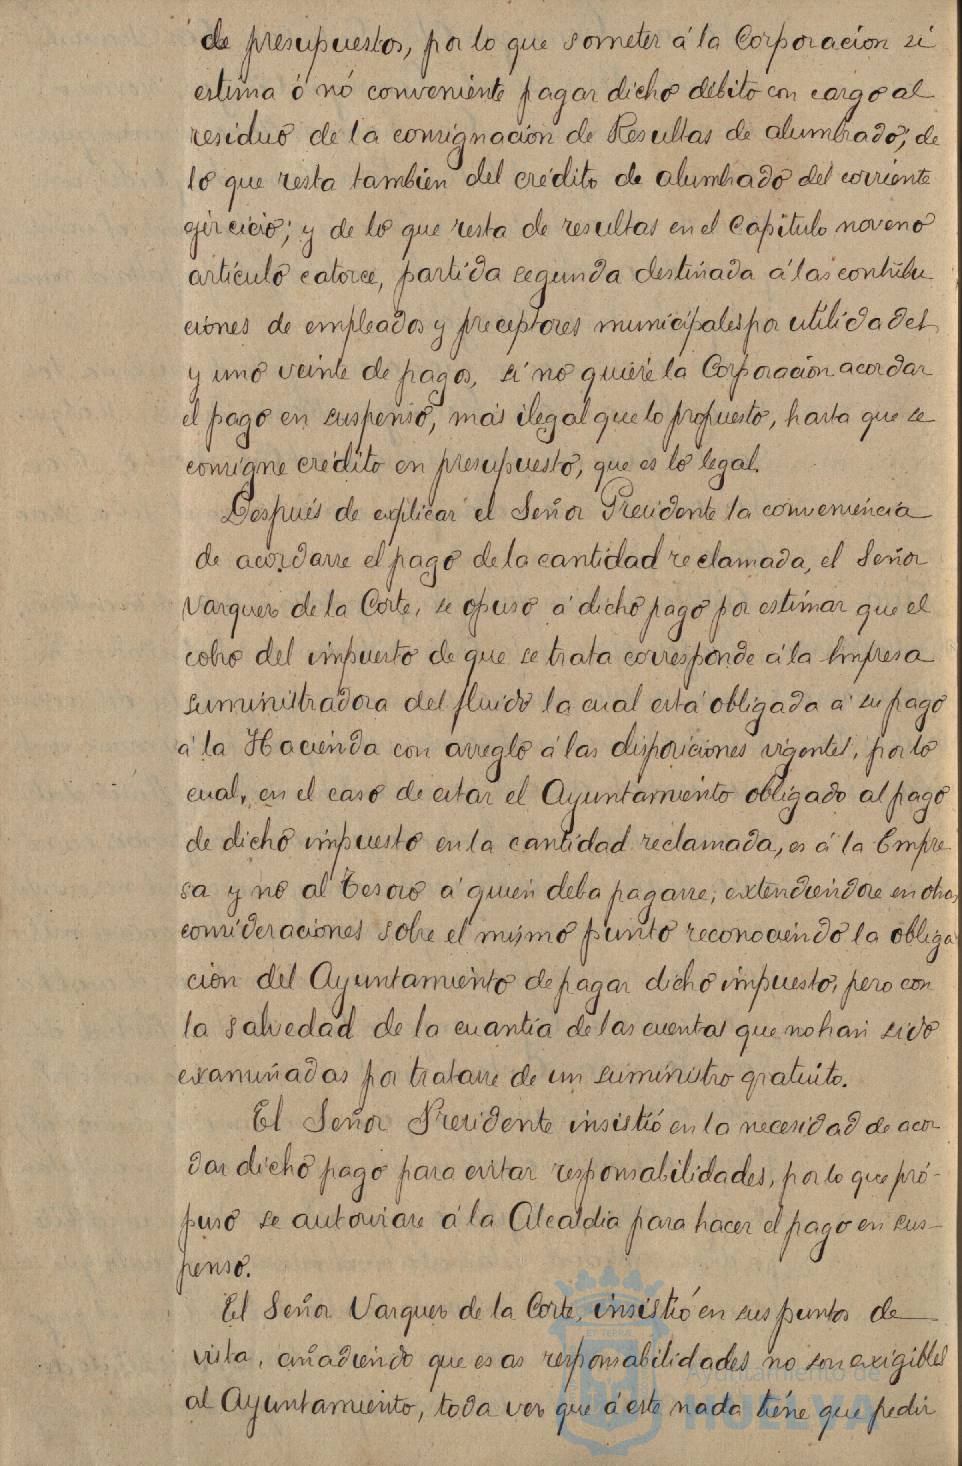 de presupuestos, por lo que someter á la Corporación si
estima ó nó conveniente pagar dicho débito con cargo al
residuo de la consignación de Resultas de alumbrado; de
lo que resta también del crédito de alumbrado del corriente
ejercicio; y de lo que resta de resultas en el Capítulo noveno
artículo catorce, partida segunda destinada á las contribu
ciones de empleados y preceptores municipales por utilidades
y uno veinte de pagos, si no quiere la Corporación acordar
el pago en suspenso, más ilegal que lo propuesto, hasta que se
consigne crédito en presupuesto, que es lo legal.
Después de explicar el Señor Presidente la conveniencia
de acordarse el pago de la cantidad reclamada, el Señor
Vazquez de la Corte, se opuso á dicho pago por estimar que el
cobro del impuesto de que se trata corresponde á la Empresa
suministradora del fluido la cual está obligada á su pago
á la Hacienda con arreglo á las disposiciones vigentes, por lo
cual, en el caso de estar el Ayuntamiento obligado al pago
de dicho impuesto en la cantidad reclamada, es á la Empre-
sa y no al Tesoro á quien deba pagarse; extendiéndose en otras
consideraciones sobre el mismo punto reconociendo la obliga
ción del Ayuntamiento de pagar dicho impuesto, pero con
la salvedad de la cuantía de las cuentas que no han sido
examinadas por tratarse de un suministro gratuito.
El Señor Presidente insistió en la necesidad de acor
dar dicho pago para evitar responsabilidades, por lo que pro-
puso se autorizase á la Alcaldía para hacer el pago en sus-
penso.
El Señor Vazquez de la Corte, insistió en sus puntos de
vista, añadiendo que esas responsabilidades no son exigibles
al Ayuntamiento, toda vez que á este nada tiene que pedir
Ayuntamiento de
HUELVA